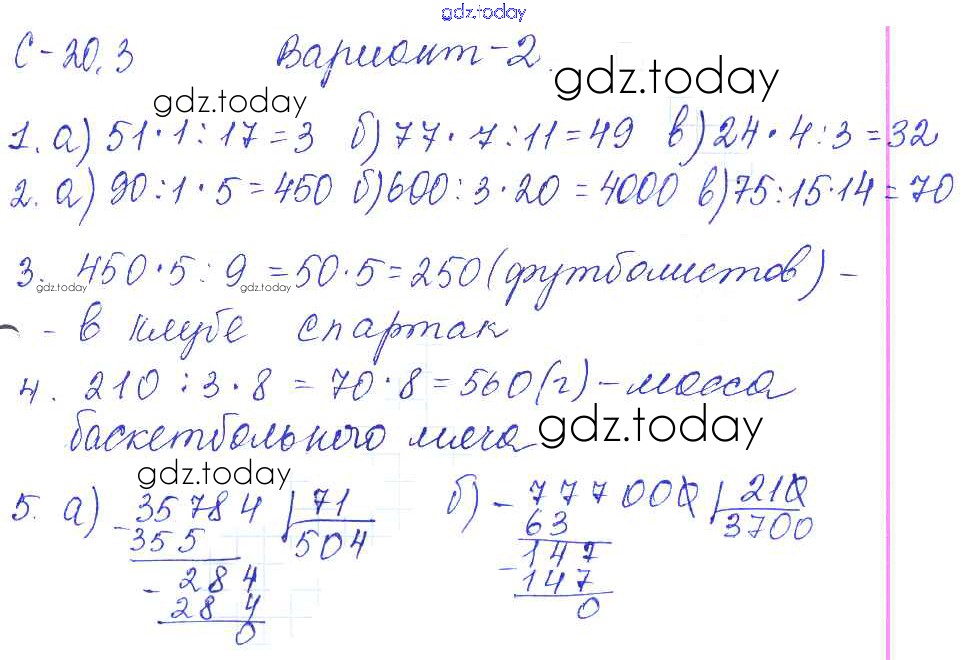 gdz.today
С-20.3 Вариант-2
gdz.today gdz.today
1. а) 51·1:17=3 б) 77·7:11=49 в) 24·4:3=32
2. а) 90:1·5=450 б) 600:3·20=4000 в) 75:15·14=70
3. 450·5:9=50·5=250 (футболистов) -
gdz.today gdz.today
- в клубе спартак
4. 210:3·8=70·8=560 (г) - масса
баскетбольного мяча gdz.today
gdz.today
5. а) - 35784 | 71 б) - 777000 | 210
355 504 63 3700
- 284 - 147
284 147
0 0